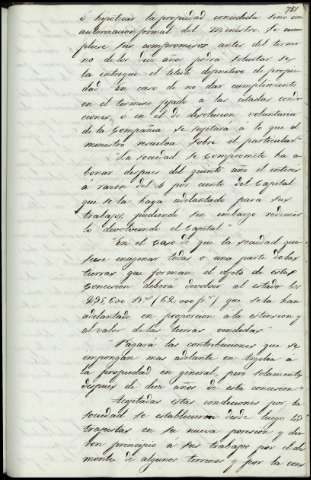 781
é hipotecar la propiedad concedida sino con
autorizacion formal del Ministro. Se cum
pliese sus compromisos antes del termi
no de los diez años podra solicitar se
la entregue el titulo definitivo de propie
dad. En caso de no dar cumplimiento
en el termino fijado a las citadas condi
ciones, o en el de disolucion voluntaria
de la Compañia se sujetara a lo que el
ministro resuelva sobre el particular
"La sociedad se compromete ha a
bonar despues del quinto año el interes
a razon del 4 por ciento del Capital
que se la haya adelantado para sus
trabajos, pudiendo sin embargo redimir
lo devolviendo el Capital"
"En el caso de que la sociedad qui
siere enagenar todas o una parte de las
tierras que forman el objeto de esta
Concesion debera devolver al estado los
que se la han
adelantado en proporcion a la estension y
al valor de las tierras vendidas"
"Pagará las contribuciones que se
impongan mas adelante en Argelia a
la propiedad en general, pero solamente
despues de diez años de esta concesion
Aceptadas estas condiciones por la
sociedad se establecieron desde luego los
trapistas en su nueva posesion y die
ron principio a sus trabajos por el des
monte de algunos terrenos y por la cons